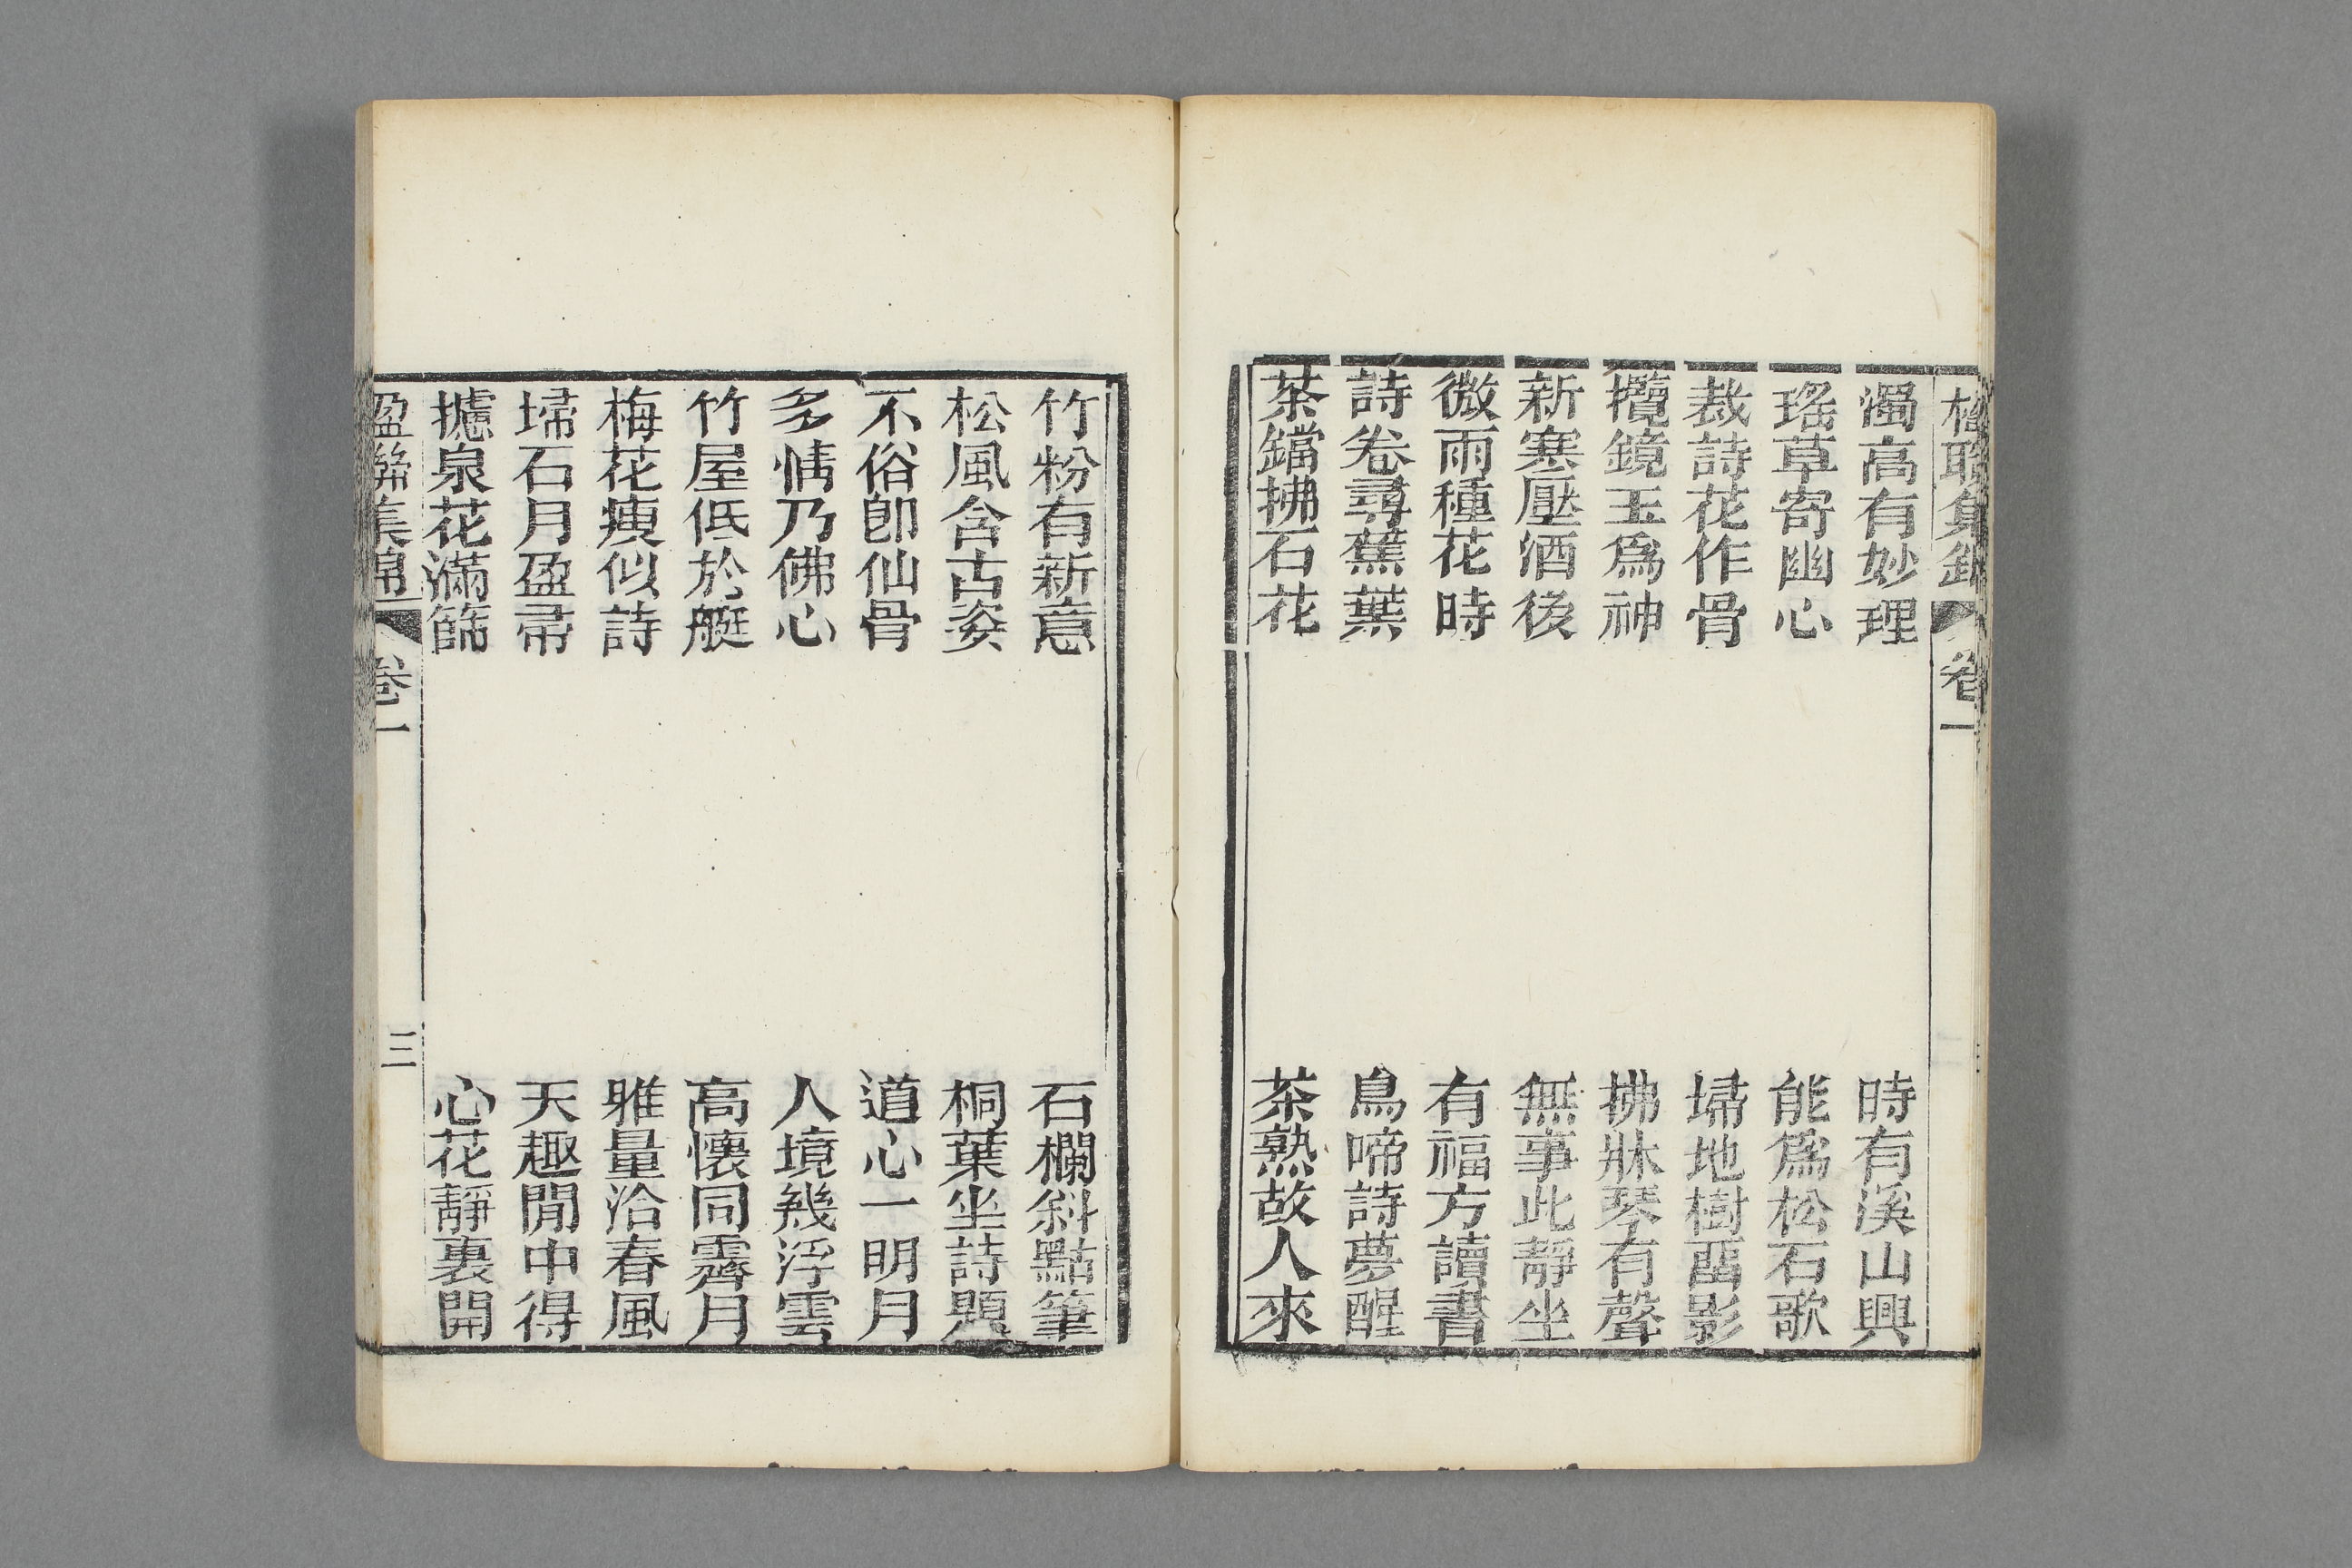 濁高有妙理
時有溪山興
瑤草寄幽心
能爲松石歌
裁詩花作骨
埽地樹畱影
攬鏡玉爲神
拂牀琴有聲
新寒壓酒後
無事此靜坐
微雨種花時
有福方讀書
詩卷尋蕉葉
鳥啼詩夢醒
茶鐺拂石花
茶熟故人來
卷一
竹粉有新意
石欄斜點筆
松風含古姿
桐葉坐詩題
不俗卽仙骨
道心一明月
多情乃佛心
人境幾浮雲
竹屋低於艇
高懷同霽月
梅花瘦似詩
雅量洽春風
埽石月盈帚
天趣閒中得
攄泉花滿篩
心花靜裏開
楹聯集錦
卷一
三